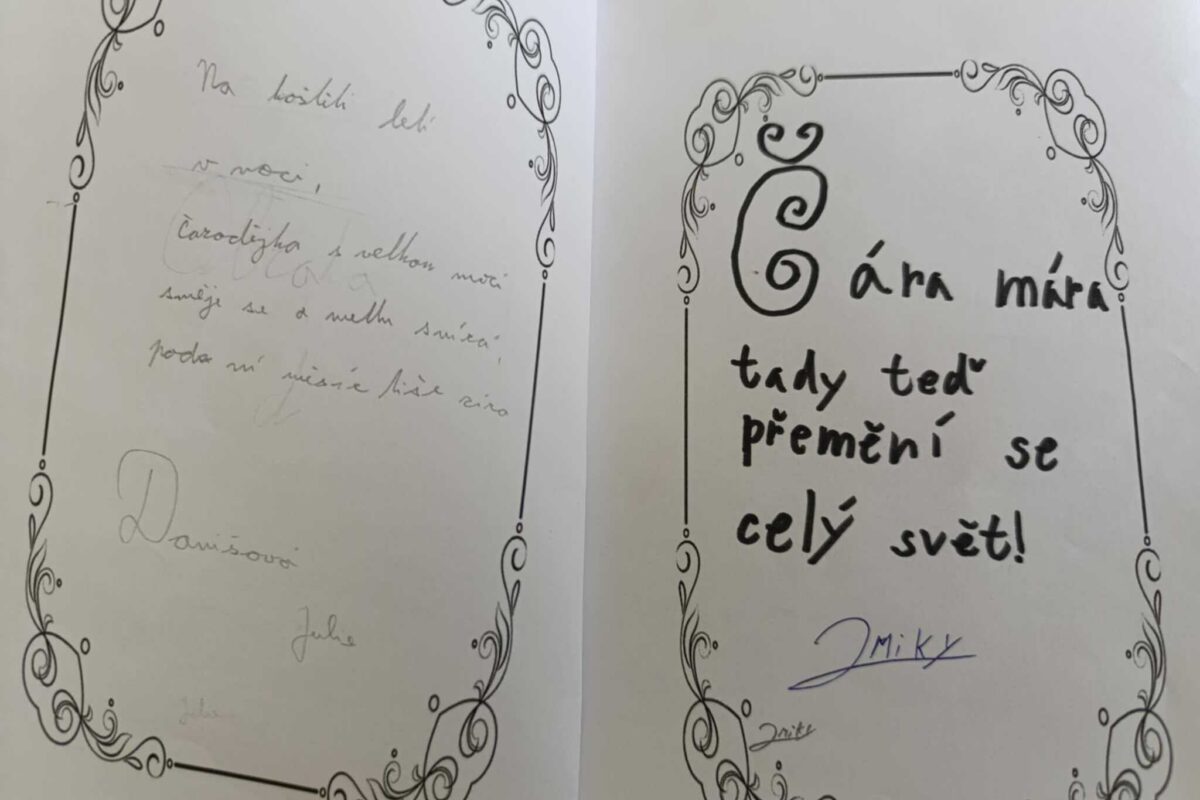 Na koštěti letí
v noci,
Čarodějka s velkou mocí
směje se a metlu svírá,
podo ní měsíc tiše zírá
Danišová
Julie
Julie
Čára mára
tady teď
přemění se
celý svět!
JMiKY
JMiKY